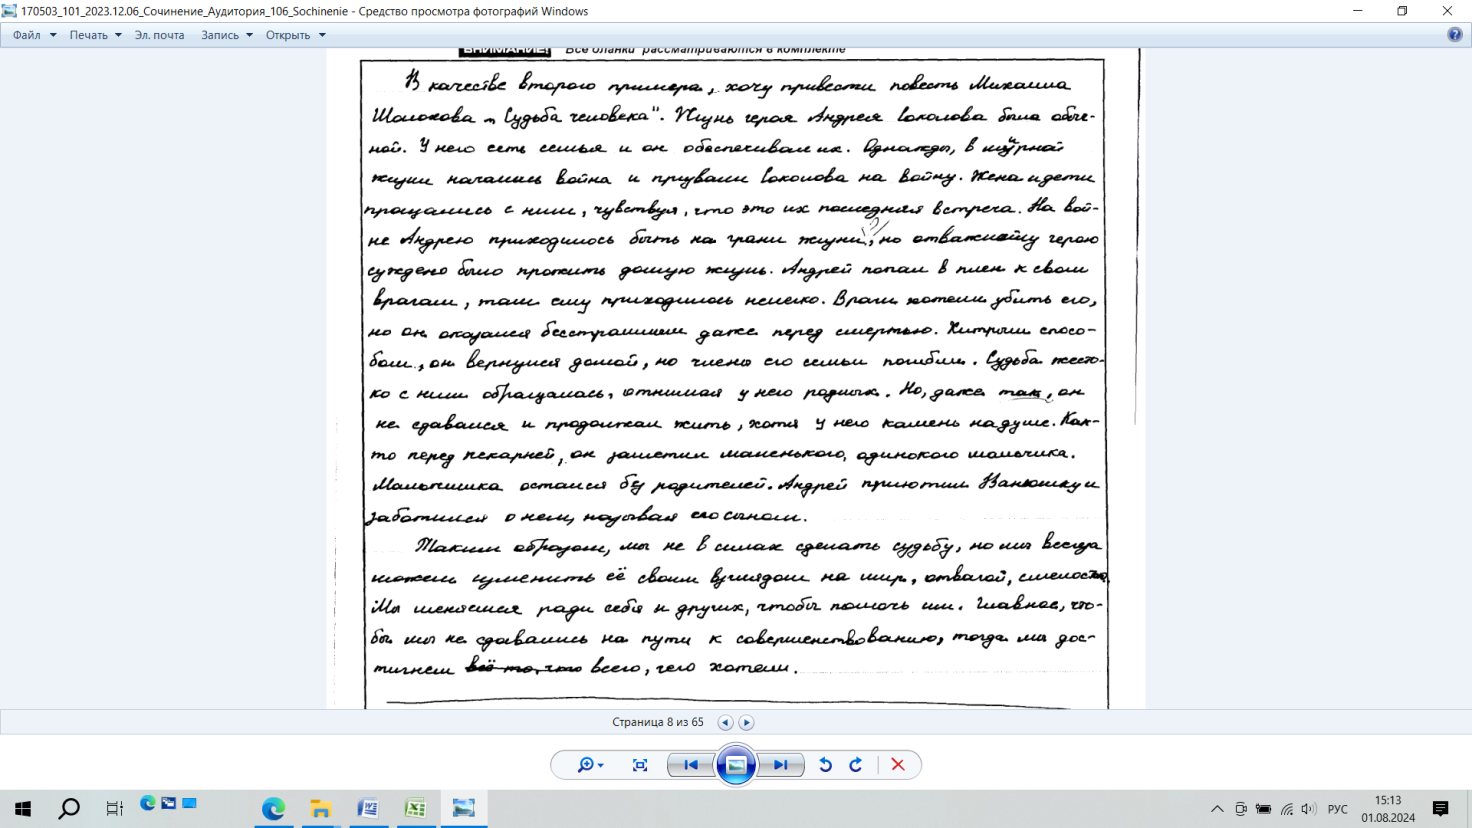 170503_101_2023.12.06_Сочинение_Аудитория_106_Sochinenie - Средство просмотра фотографий Windows
Файл Печать Эл. почта Запись Открыть
ВНИМАНИЕ! Все бланки рассматриваются в комплекте
В качестве второго примера, хочу привести повесть Михаила
Шолохова „Судьба человека". Жизнь героя Андрея Соколова была обыч-
ной. У него есть семья и он обеспечивал их. Однажды, в мирной
жизни началась война и призвали Соколова на войну. Жена и дети
прощались с ним, чувствуя, что это их последняя встреча. На вой-
не Андрею приходилось быть на грани жизни, но отважному герою
суждено было прожить долгую жизнь. Андрей попал в плен к своим
врагам, там ему приходилось нелегко. Враги хотели убить его,
но он оказался бесстрашным даже перед смертью. Хитрым спосо-
бом, он вернулся домой, но члены его семьи погибли. Судьба жесто-
ко с ним обращалась, отнимая у него родных. Но, даже так, он
не сдавался и продолжал жить, хотя у него камень на душе. Как-
то перед пекарней, он заметил маленького, одинокого мальчика.
Мальчишка остался без родителей. Андрей приютил Ванюшку и
заботился о нем, называя его сыном.
Таким образом, мы не в силах сделать судьбу, но мы всегда
можем изменить её своим взглядом на мир, отвагой, смелостью.
Мы меняемся ради себя и других, чтобы помочь им. Главное, что-
бы мы не сдавались на пути к совершенствованию, тогда мы дос-
тигнем всё то, что всего, чего хотели.
Страница 8 из 65
РУС
15:13
01.08.2024